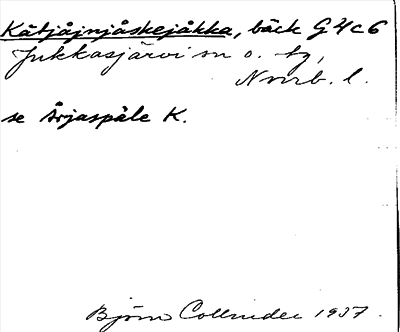 Kåtjåjnjåskejåkka, bäck G4c6
Jukkasjärvi sn o. tg,
Norrb. l.
se Årjaspåle K.
Björn Collinder 1937.